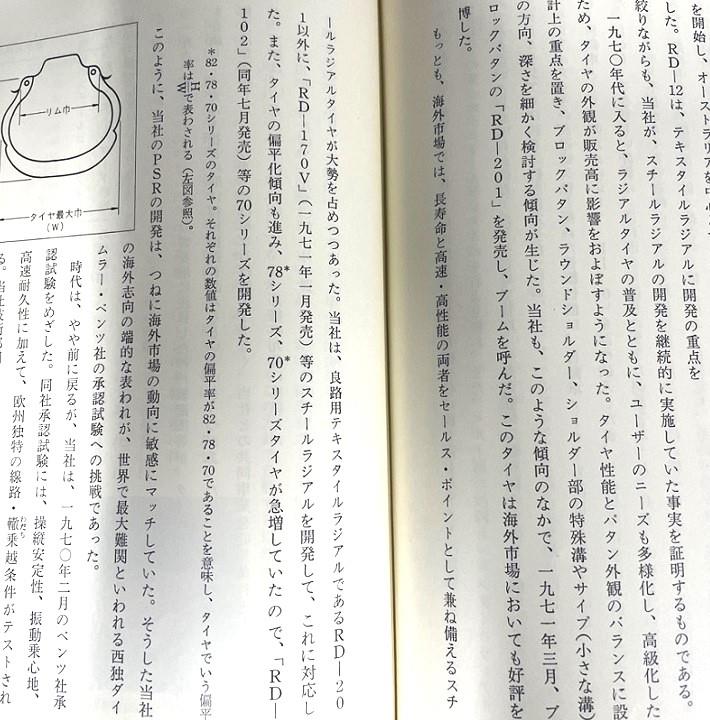 を開始し、オーストラリアを中心と
した。RD―12は、テキスタイルラジアルに開発の重点を
絞りながらも、当社が、スチールラジアルの開発を継続的に実施していた事実を証明するものである。
一九七〇年代に入ると、ラジアルタイヤの普及とともに、ユーザーのニーズも多様化し、高級化した
ため、タイヤの外観が販売高に影響をおよぼすようになった。タイヤ性能とパタン外観のバランスに設
計上の重点を置き、ブロックパタン、ラウンドショルダー、ショルダー部の特殊溝やサイプ(小さな溝)
の方向、深さを細かく検討する傾向が生じた。当社も、このような傾向のなかで、一九七一年三月、ブ
ロックパタンの「RD―201」を発売し、ブームを呼んだ。このタイヤは海外市場においても好評を
博した。
もっとも、海外市場では、長寿命と高速・高性能の両者をセールス・ポイントとして兼ね備えるスチ
ールラジアルタイヤが大勢を占めつつあった。当社は、良路用テキスタイルラジアルであるRD―20
1以外に、「RD―170V」(一九七一年一月発売)等のスチールラジアルを開発して、これに対応し
た。また、タイヤの偏平化傾向も進み、78*シリーズ、70*シリーズタイヤが急増していたので、「RD―
102」(同年七月発売)等の70シリーズを開発した。
*82・78・70シリーズのタイヤ。それぞれの数値はタイヤの偏平率が82・78・70であることを意味し、タイヤでいう偏平
率はH/Wで表わされる(左図参照)。
このように、当社のPSRの開発は、つねに海外市場の動向に敏感にマッチしていた。そうした当社
の海外志向の端的な表われが、世界で最大難関といわれる西独ダイ
ムラー・ベンツ社の承認試験への挑戦であった。
時代は、やや前に戻るが、当社は、一九七〇年二月のベンツ社承
認試験をめざした。同社承認試験には、操縦安定性、振動乗心地、
高速耐久性に加えて、欧州独特の線路・轍乗越条件がテストされ
わだち
リム巾
タイヤ最大巾
(W)